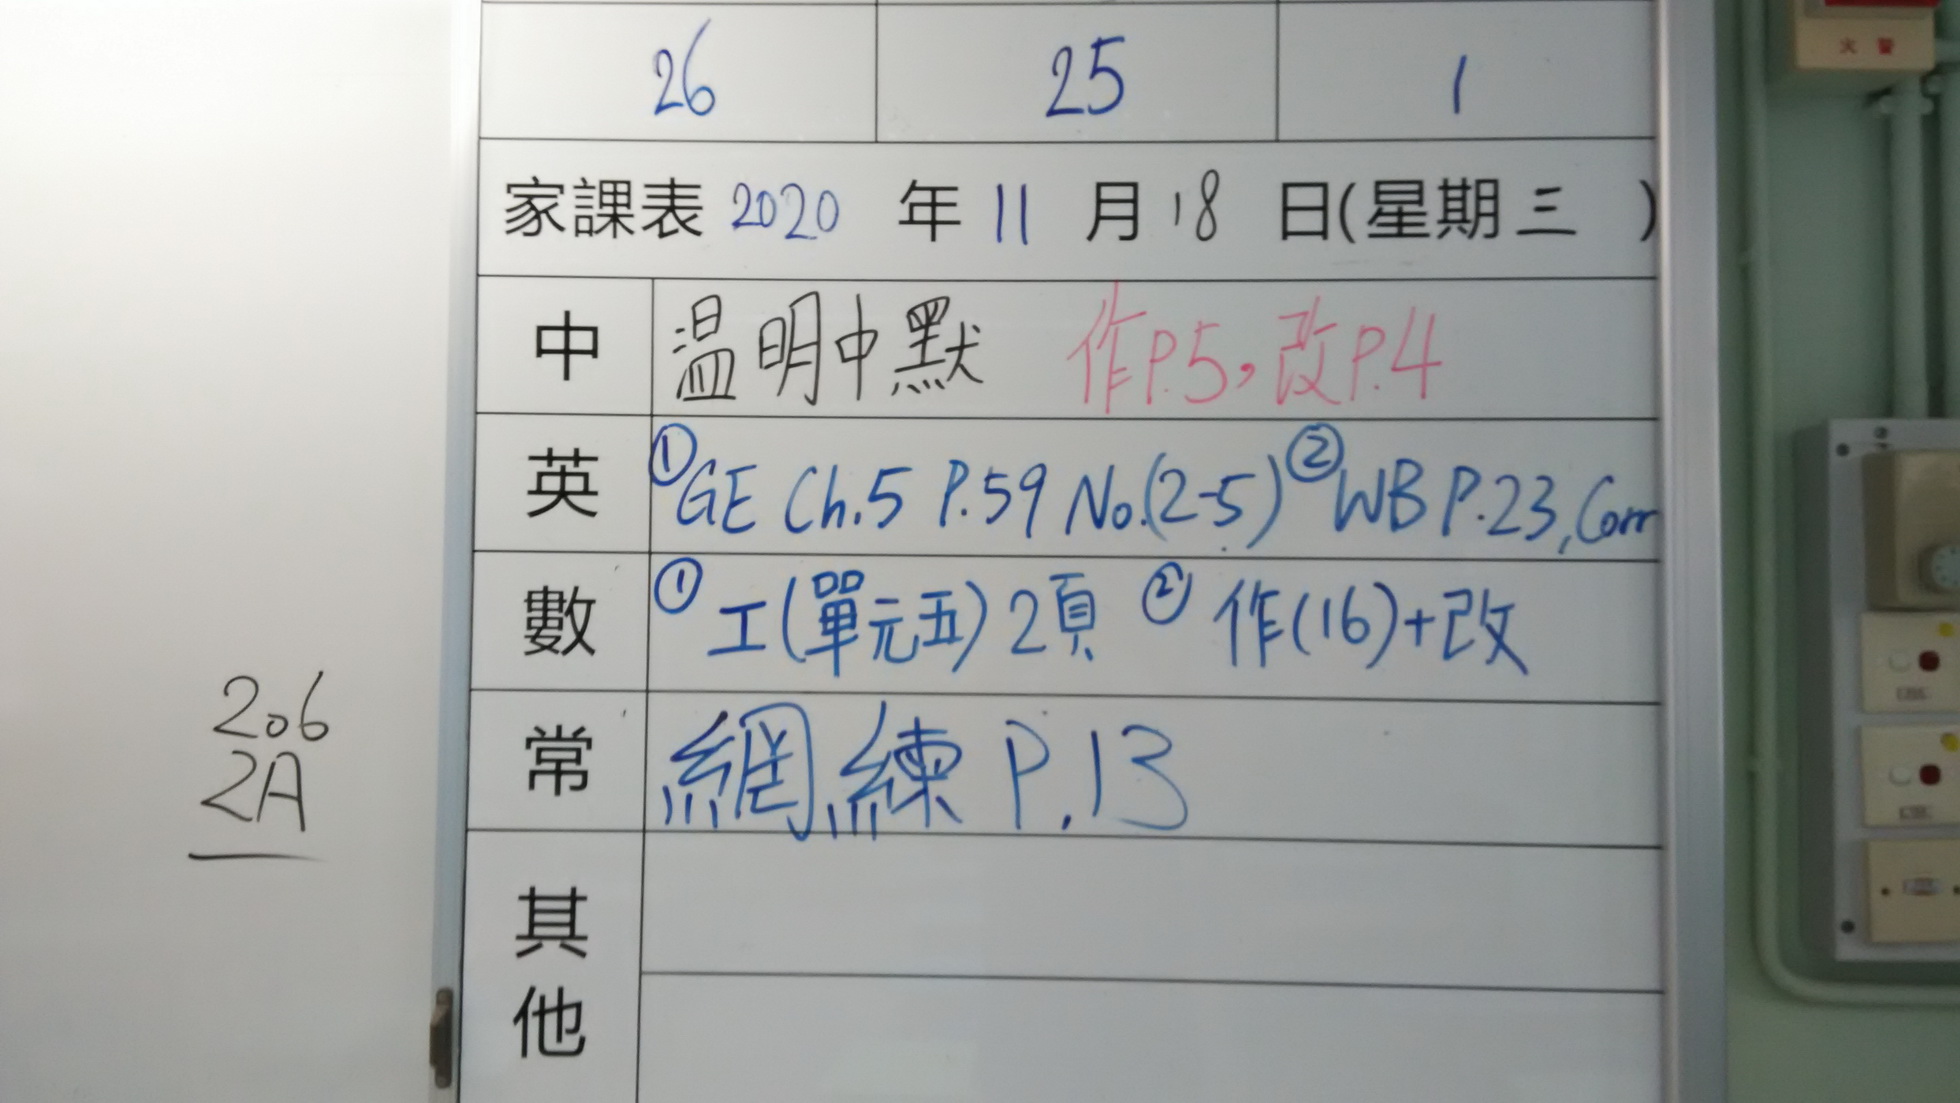 26 25 1
火警
家課表 2020 年 11 月 18 日(星期三 )
中 温明中默 作P.5,改P.4
英 ①GE Ch.5 P.59 No.(2-5) ②WB P.23,Corr
數 ①工(單元五)2頁 ②作(16)+改
常 網練 P.13
其他
206
2A